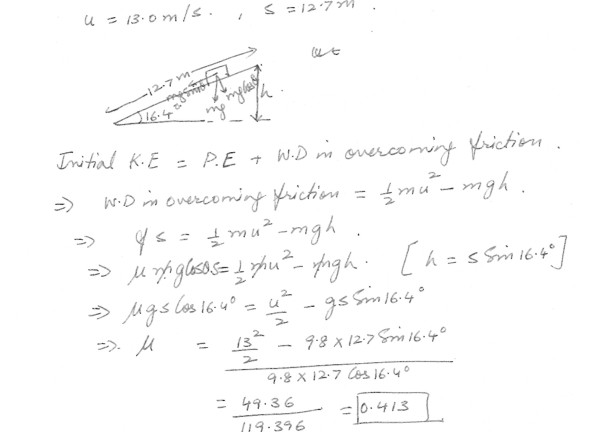 u = 13.0 m/s. , s = 12.7 m.
12.7 m
mg sinθ
16.4°
mg
mg cosθ
h.
Initial K.E = P.E + W.D in overcoming friction.
⇒ W.D in overcoming friction = 1/2 mu² - mgh.
⇒ f s = 1/2 mu² - mgh.
⇒ μ mg cosθ s = 1/2 mu² - mgh. [h = s Sin 16.4°]
⇒ μgs Cos 16.4° = u²/2 - gs Sin 16.4°
⇒. μ = (13²/2 - 9.8 × 12.7 Sin 16.4°) / (9.8 × 12.7 Cos 16.4°)
= 49.36/119.396 = 0.413